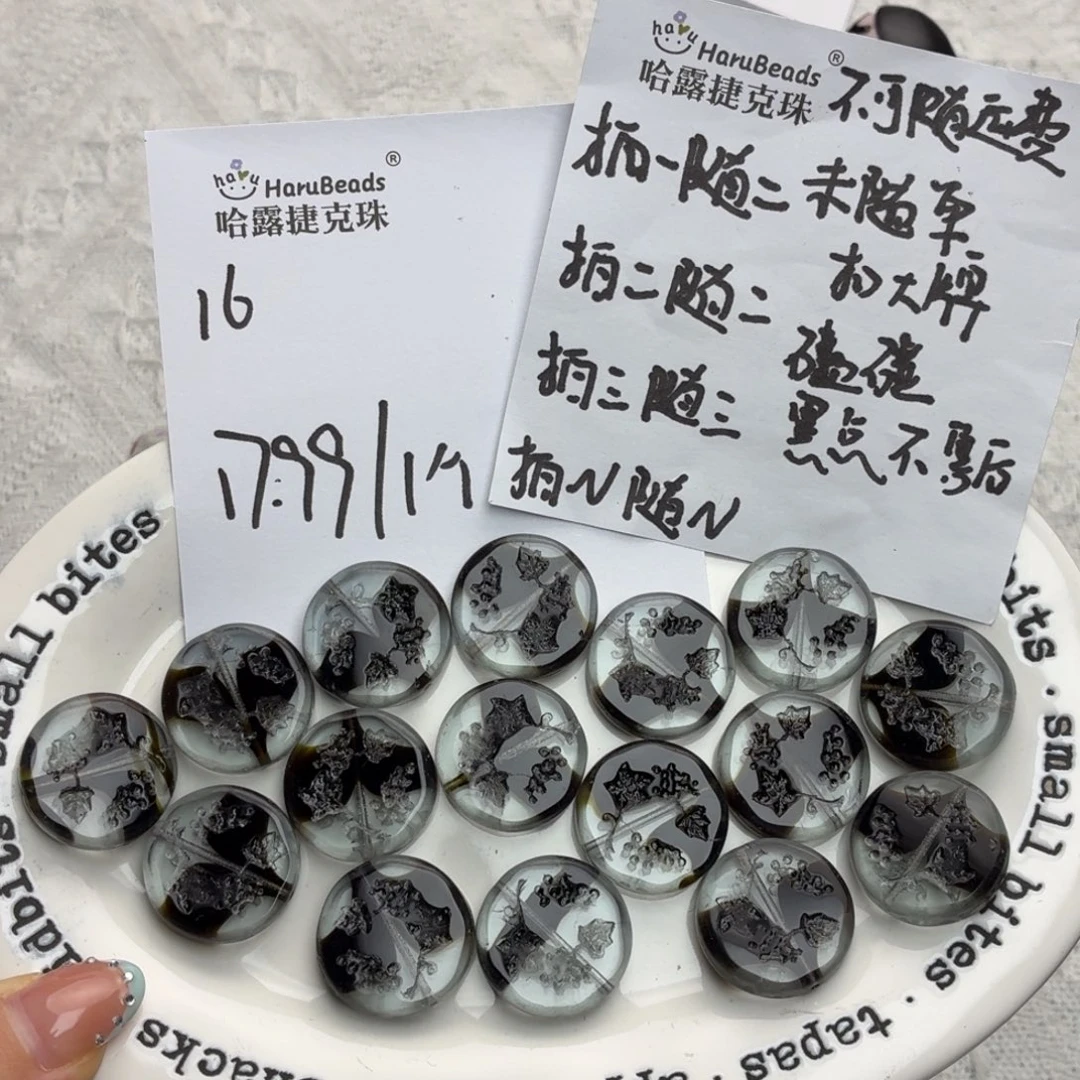 haru HaruBeads®
哈露捷克珠
16
17.99/1个
haru HaruBeads®
哈露捷克珠
不可随运费
拍一随二 未随單
拍二随二 扣大牌
拍三随三 磕磕
拍N随N 黑点不售后
small bites
bits · small bites · tapas ·
snacks